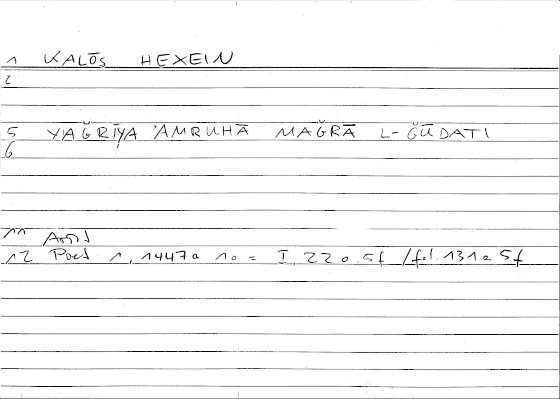 1 KALŌS HEXEIN
2
5 YAǦRIYA 'AMRUHĀ MAǦRĀ L-ǦŪDATI
6
11 Arist
12 Poet 1, 1447a 10 = I, 220, 5f /fol. 131a 5f